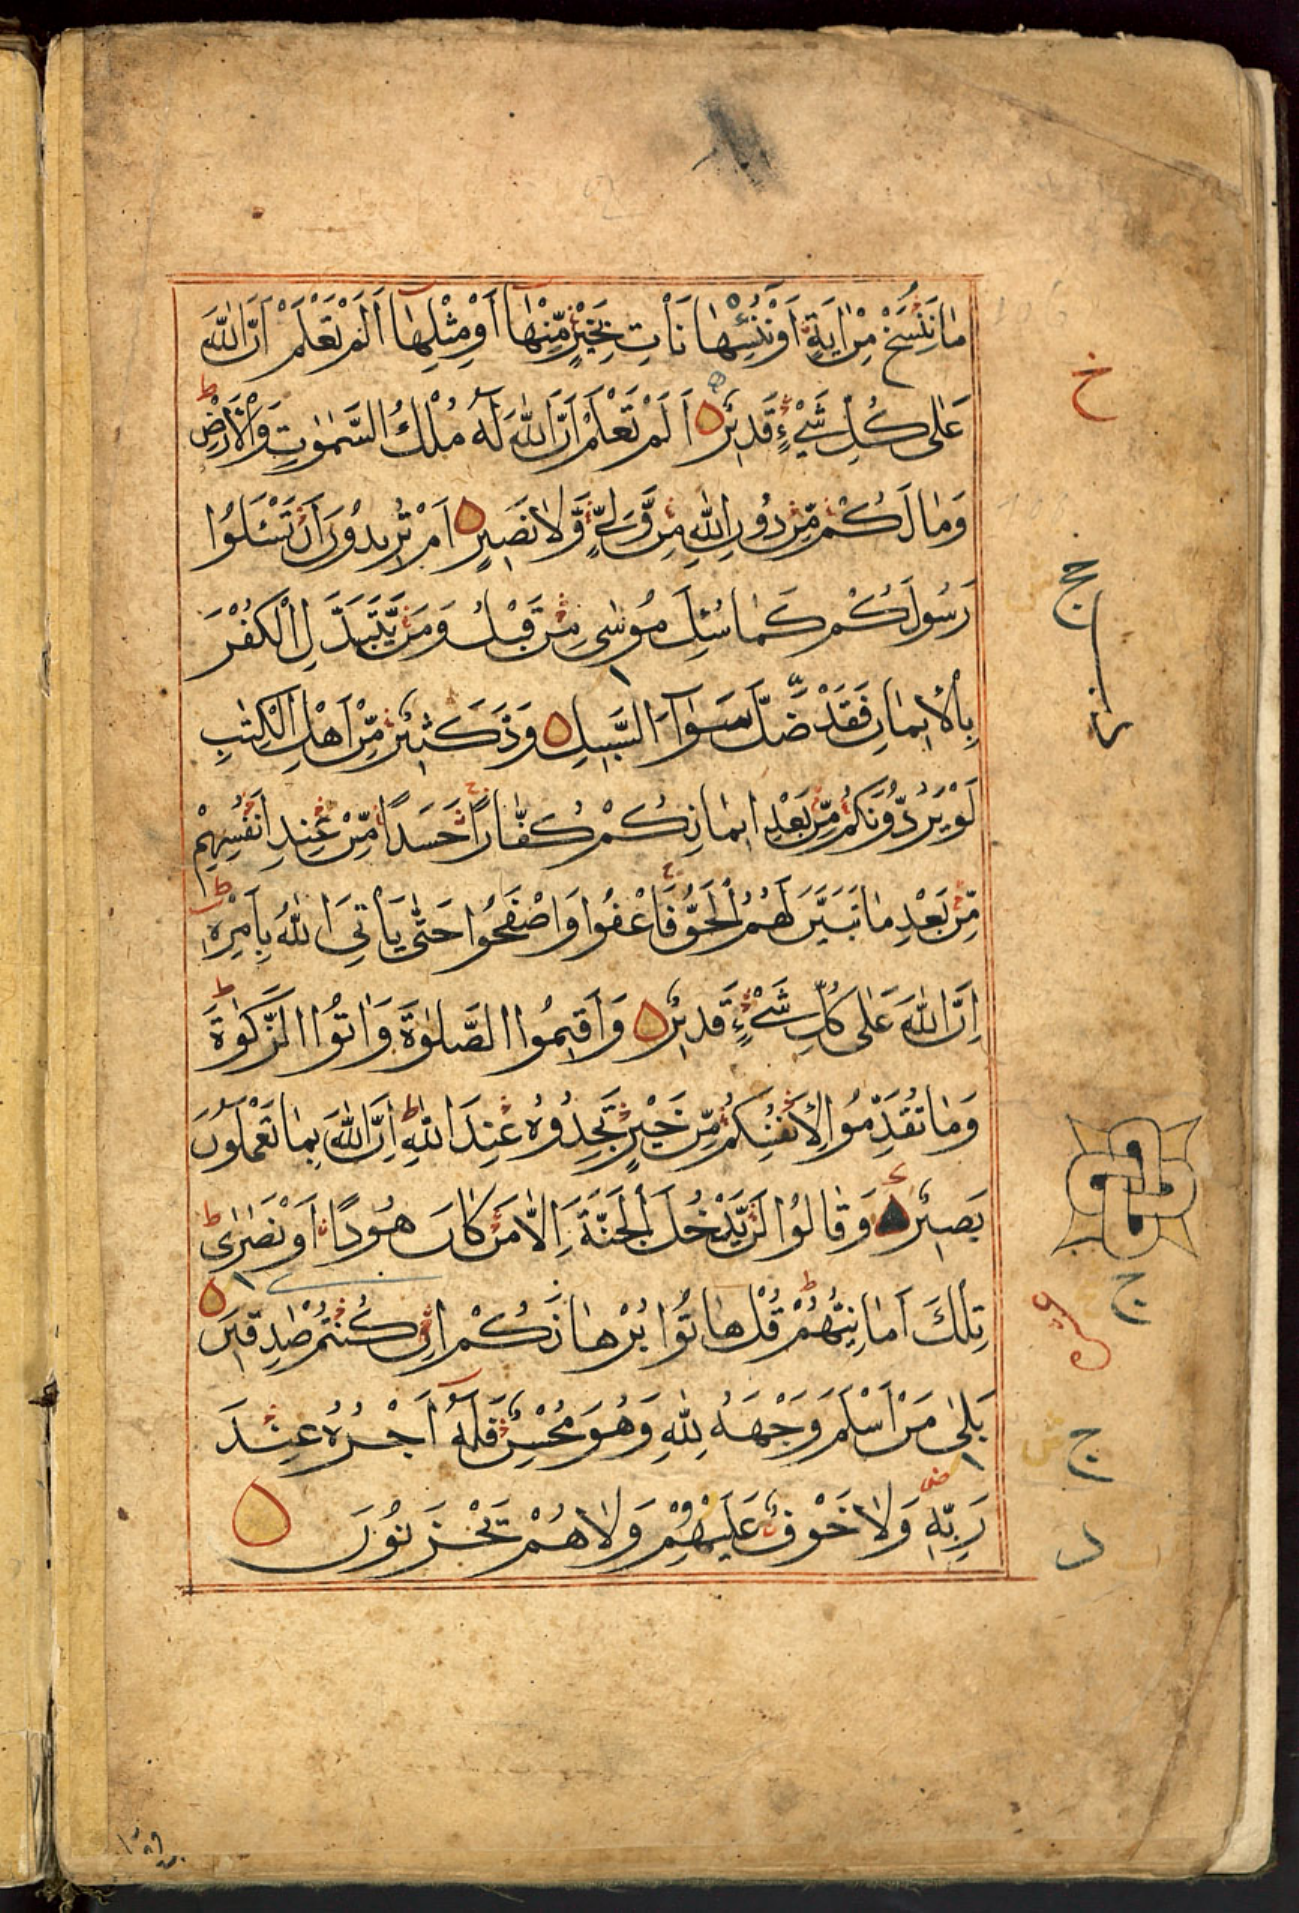 مَا نَنْسَخْ مِنْ اٰيَةٍ اَوْ نُنْسِهَا نَاْتِ بِخَيْرٍ مِّنْهَا اَوْ مِثْلِهَا اَلَمْ تَعْلَمْ اَنَّ اللّٰهَ
عَلٰى كُلِّ شَيْءٍ قَدِيْرٌ اَلَمْ تَعْلَمْ اَنَّ اللّٰهَ لَهٗ مُلْكُ السَّمٰوٰتِ وَالْاَرْضِ
وَمَا لَكُمْ مِّنْ دُوْنِ اللّٰهِ مِنْ وَّلِيٍّ وَّلَا نَصِيْرٍ اَمْ تُرِيْدُوْنَ اَنْ تَسْـَٔلُوْا
رَسُوْلَكُمْ كَمَا سُئِلَ مُوْسٰى مِنْ قَبْلُ وَمَنْ يَّتَبَدَّلِ الْكُفْرَ
بِالْاِيْمَانِ فَقَدْ ضَلَّ سَوَآءَ السَّبِيْلِ وَدَّ كَثِيْرٌ مِّنْ اَهْلِ الْكِتٰبِ
لَوْ يَرُدُّوْنَكُمْ مِّنْ بَعْدِ اِيْمَانِكُمْ كُفَّارًا حَسَدًا مِّنْ عِنْدِ اَنْفُسِهِمْ
مِّنْ بَعْدِ مَا تَبَيَّنَ لَهُمُ الْحَقُّ فَاعْفُوْا وَاصْفَحُوْا حَتّٰى يَاْتِيَ اللّٰهُ بِاَمْرِهٖ
اِنَّ اللّٰهَ عَلٰى كُلِّ شَيْءٍ قَدِيْرٌ وَاَقِيْمُوا الصَّلٰوةَ وَاٰتُوا الزَّكٰوةَ
وَمَا تُقَدِّمُوْا لِاَنْفُسِكُمْ مِّنْ خَيْرٍ تَجِدُوْهُ عِنْدَ اللّٰهِ اِنَّ اللّٰهَ بِمَا تَعْمَلُوْنَ
بَصِيْرٌ وَقَالُوْا لَنْ يَّدْخُلَ الْجَنَّةَ اِلَّا مَنْ كَانَ هُوْدًا اَوْ نَصٰرٰى
تِلْكَ اَمَانِيُّهُمْ قُلْ هَاتُوْا بُرْهَانَكُمْ اِنْ كُنْتُمْ صٰدِقِيْنَ
بَلٰى مَنْ اَسْلَمَ وَجْهَهٗ لِلّٰهِ وَهُوَ مُحْسِنٌ فَلَهٗ اَجْرُهٗ عِنْدَ
رَبِّهٖ وَلَا خَوْفٌ عَلَيْهِمْ وَلَا هُمْ يَحْزَنُوْنَ